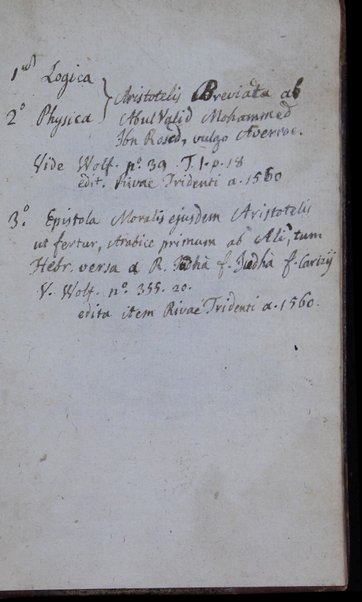 1us Logica
2o Physica } Aristotelis Breviata ab
Abul Valid Mohammed
Ibn Rosed, vulgo Averroe.
Vide Wolf. no. 39. T. 1. p. 18
edit. Rivae Tridenti a. 1560
3o. Epistola Moralis ejusdem Aristotelis
ut fertur, Arabice primum ab Ali, tum
Hebr. versa a R. Judhà f. Judhà f. Carizij
V. Wolf. no. 355. 20.
edita item Rivae Tridenti a. 1560.